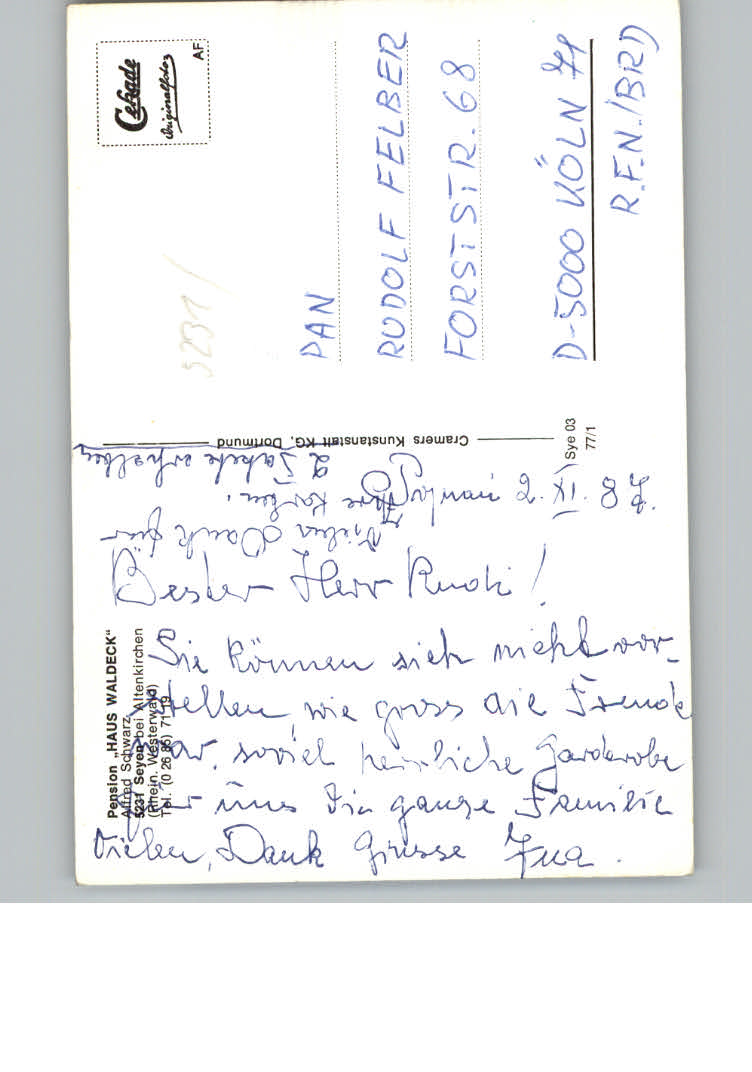 Cekade
Originalfoto
AF
5231
PAN
RUDOLF FELBER
FORSTSTR. 68
D-5000 KÖLN 71
R.F.N./BRD
Cramers Kunstanstalt KG, Dortmund
Sye 03
77/1
Pension „HAUS WALDECK“
Alfred Schwarz
5231 Seyen bei Altenkirchen
(Rhein. Westerwald)
Tel. (0 26 85) 71 19
2. IX. 87.
Bester Herr Rudi!
Sie können sich nicht vor-
stellen, wie gross die Freude
war, soviel herrliche Garderobe
für uns die ganze Familie
Vielen Dank Grüsse
Vielen Dank für
Ihre Karten.
2 Pakete erhalten